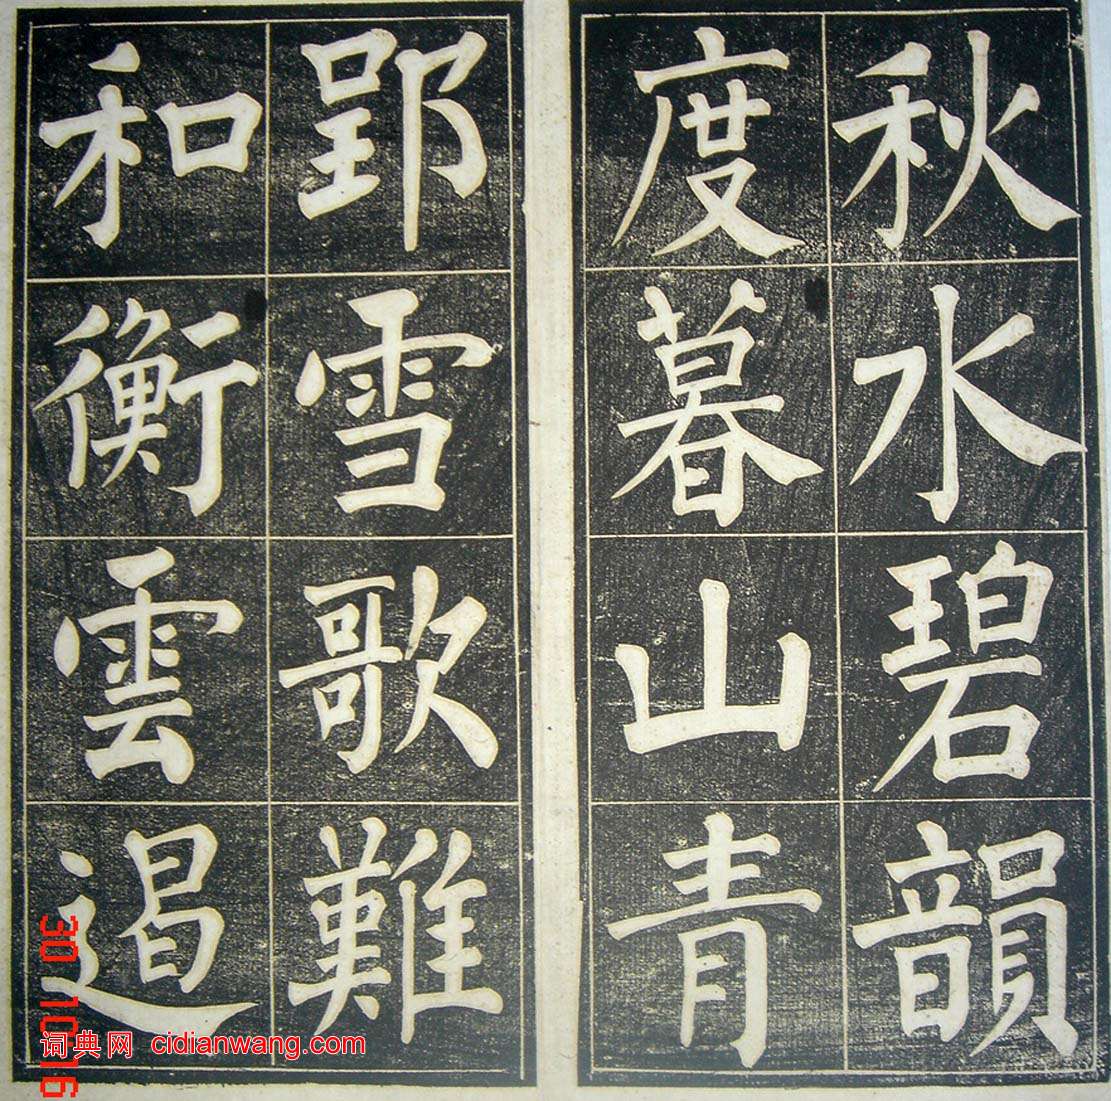 秋水碧韻
度暮山青
郢雪歌難
和衡雲遏
30 10 16
词典网 cidianwang.com